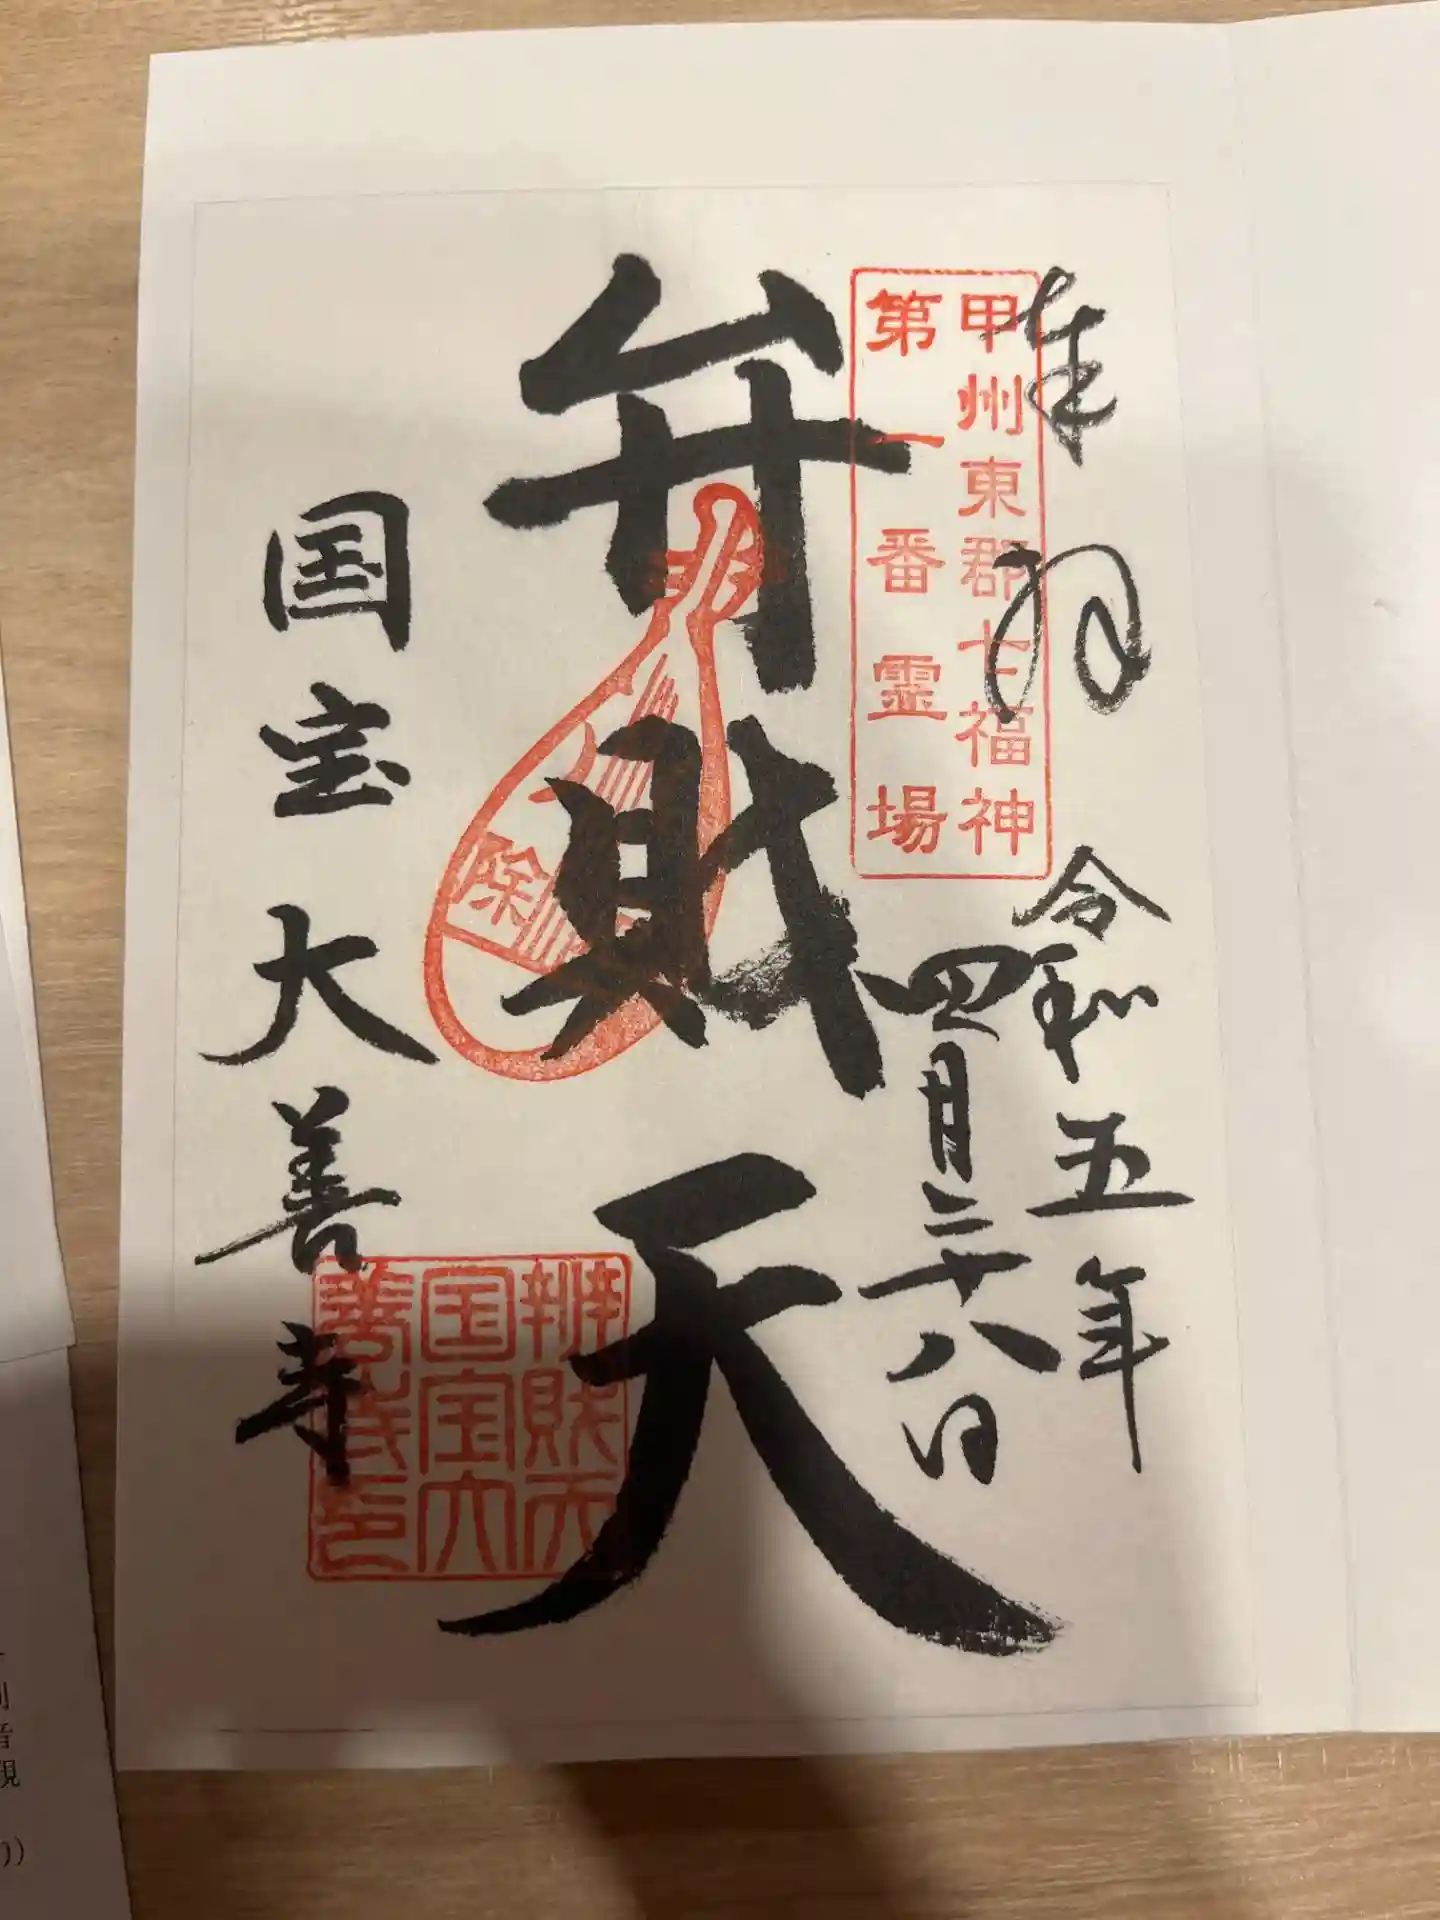 奉拝
令和五年
四月二十八日
甲州東郡七福神
第一番霊場
弁財天
除
国宝大善寺
辨財天
国宝大
善寺印